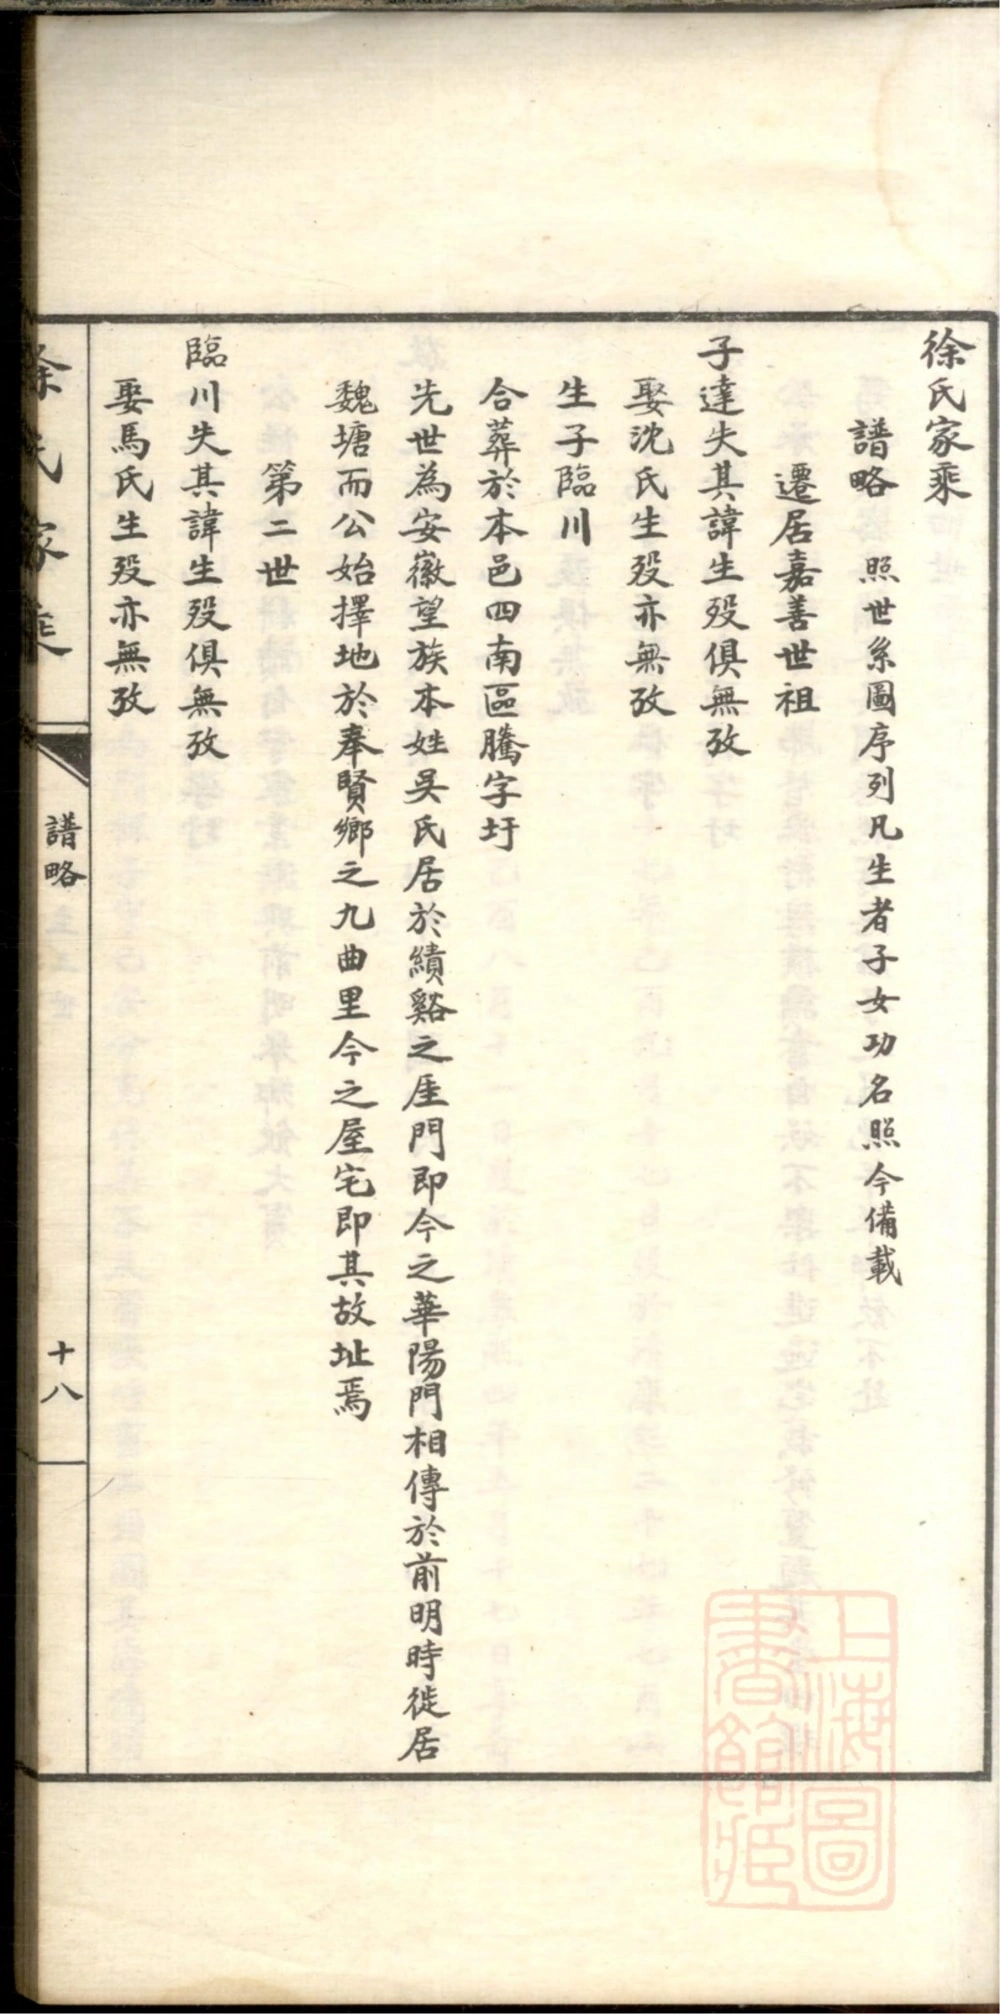 徐氏家乘
譜略 照世系圖序列凡生者子女功名照今備載
遷居嘉善世祖
子達失其諱生歿俱無攷
娶沈氏生歿亦無攷
生子臨川
合葬於本邑四南區騰字圩
先世為安徽望族本姓吳氏居於績谿之厓門即今之華陽門相傳於前明時徙居
魏塘而公始擇地於奉賢鄉之九曲里今之屋宅即其故址焉
第二世
臨川失其諱生歿俱無攷
娶馬氏生歿亦無攷
徐氏家乘
譜略
十八
上海圖
書館藏